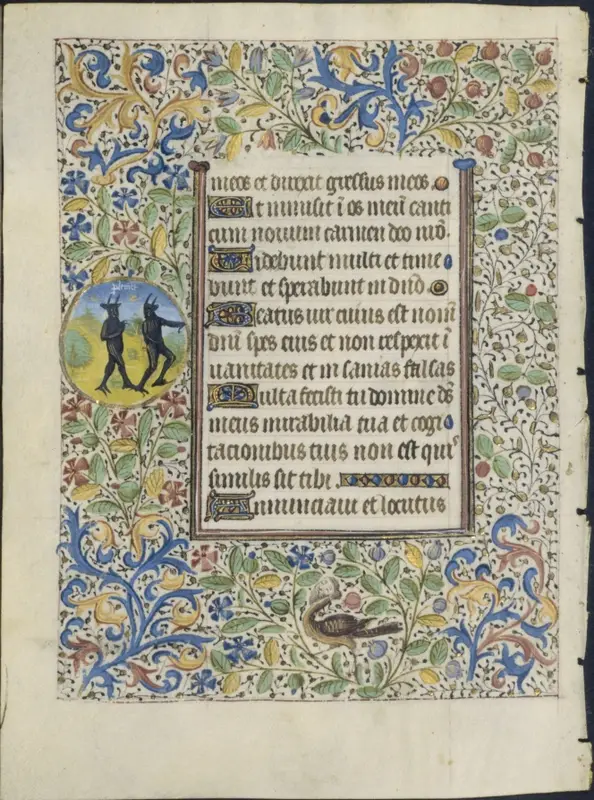 meos et direxit gressus meos.
Et inmisit ī os meū canti
cum novum carmen deo nr̄o.
Videbunt multi et time
bunt et sperabunt in dn̄o
Beatus vir cuius est nomē
dn̄i spes eius et non respexit ī
vanitates et in sanias falsas
Multa fecisti tu domine ds̄
meus mirabilia tua et cogi
tacionibus tuis non est qui
similis sit tibi.
Annunciavi et locutus